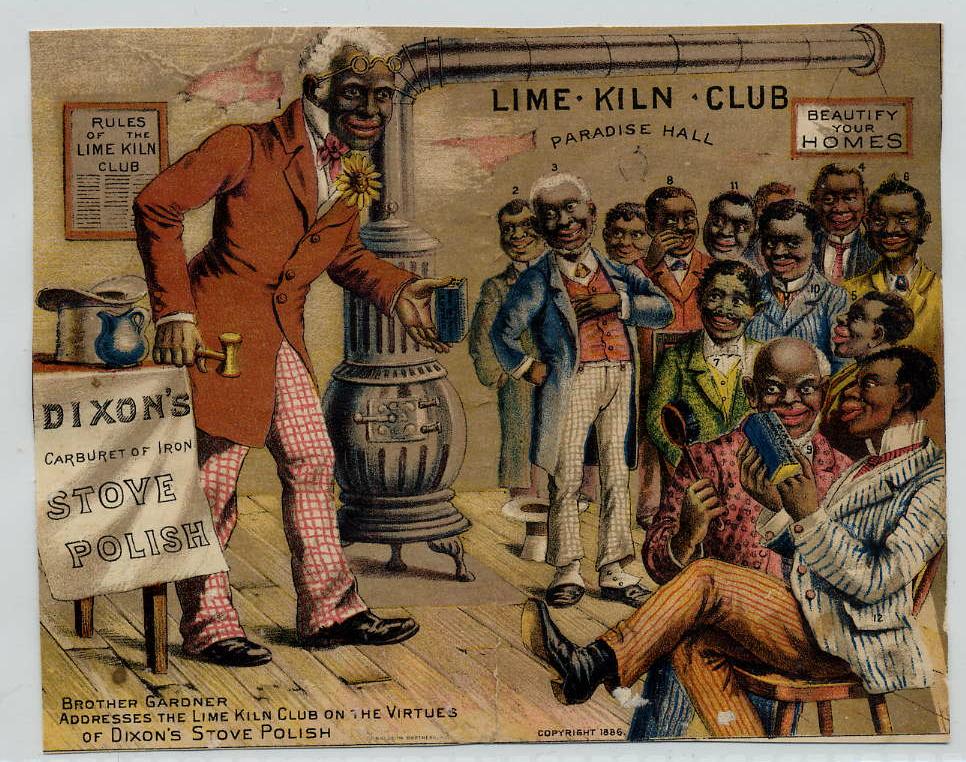 RULES
OF THE
LIME KILN
CLUB
LIME • KILN • CLUB
PARADISE HALL
BEAUTIFY
YOUR
HOMES
1
2
3
8
11
4
6
10
5
7
9
12
DIXON'S
CARBURET OF IRON
STOVE
POLISH
BROTHER GARDNER
ADDRESSES THE LIME KILN CLUB ON THE VIRTUES
OF DIXON'S STOVE POLISH
COPYRIGHT 1886.